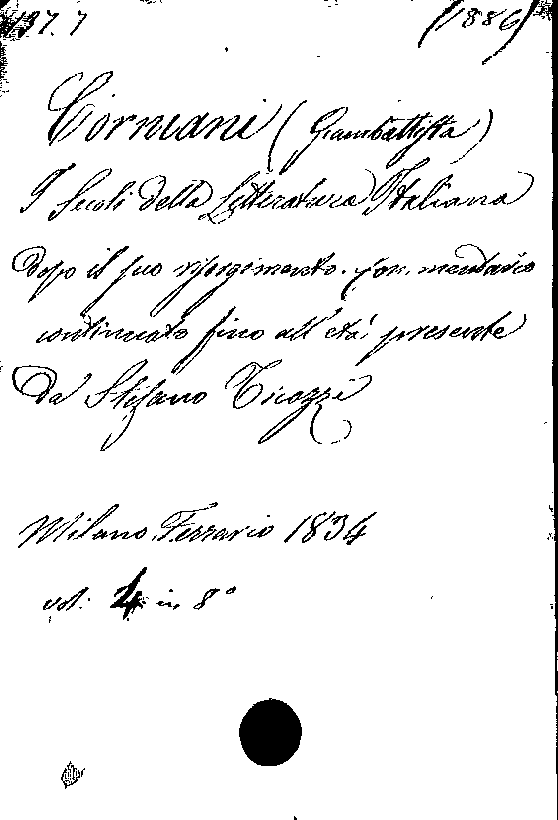 137.7
(1886)
Corniani (Giambattista)
I Secoli della Letteratura Italiana
dopo il suo risorgimento. Com. mentario
continuato fino all'età presente
Da Stefano Ticozzi
Milano Ferrario 1834
vol: 4 in 8°